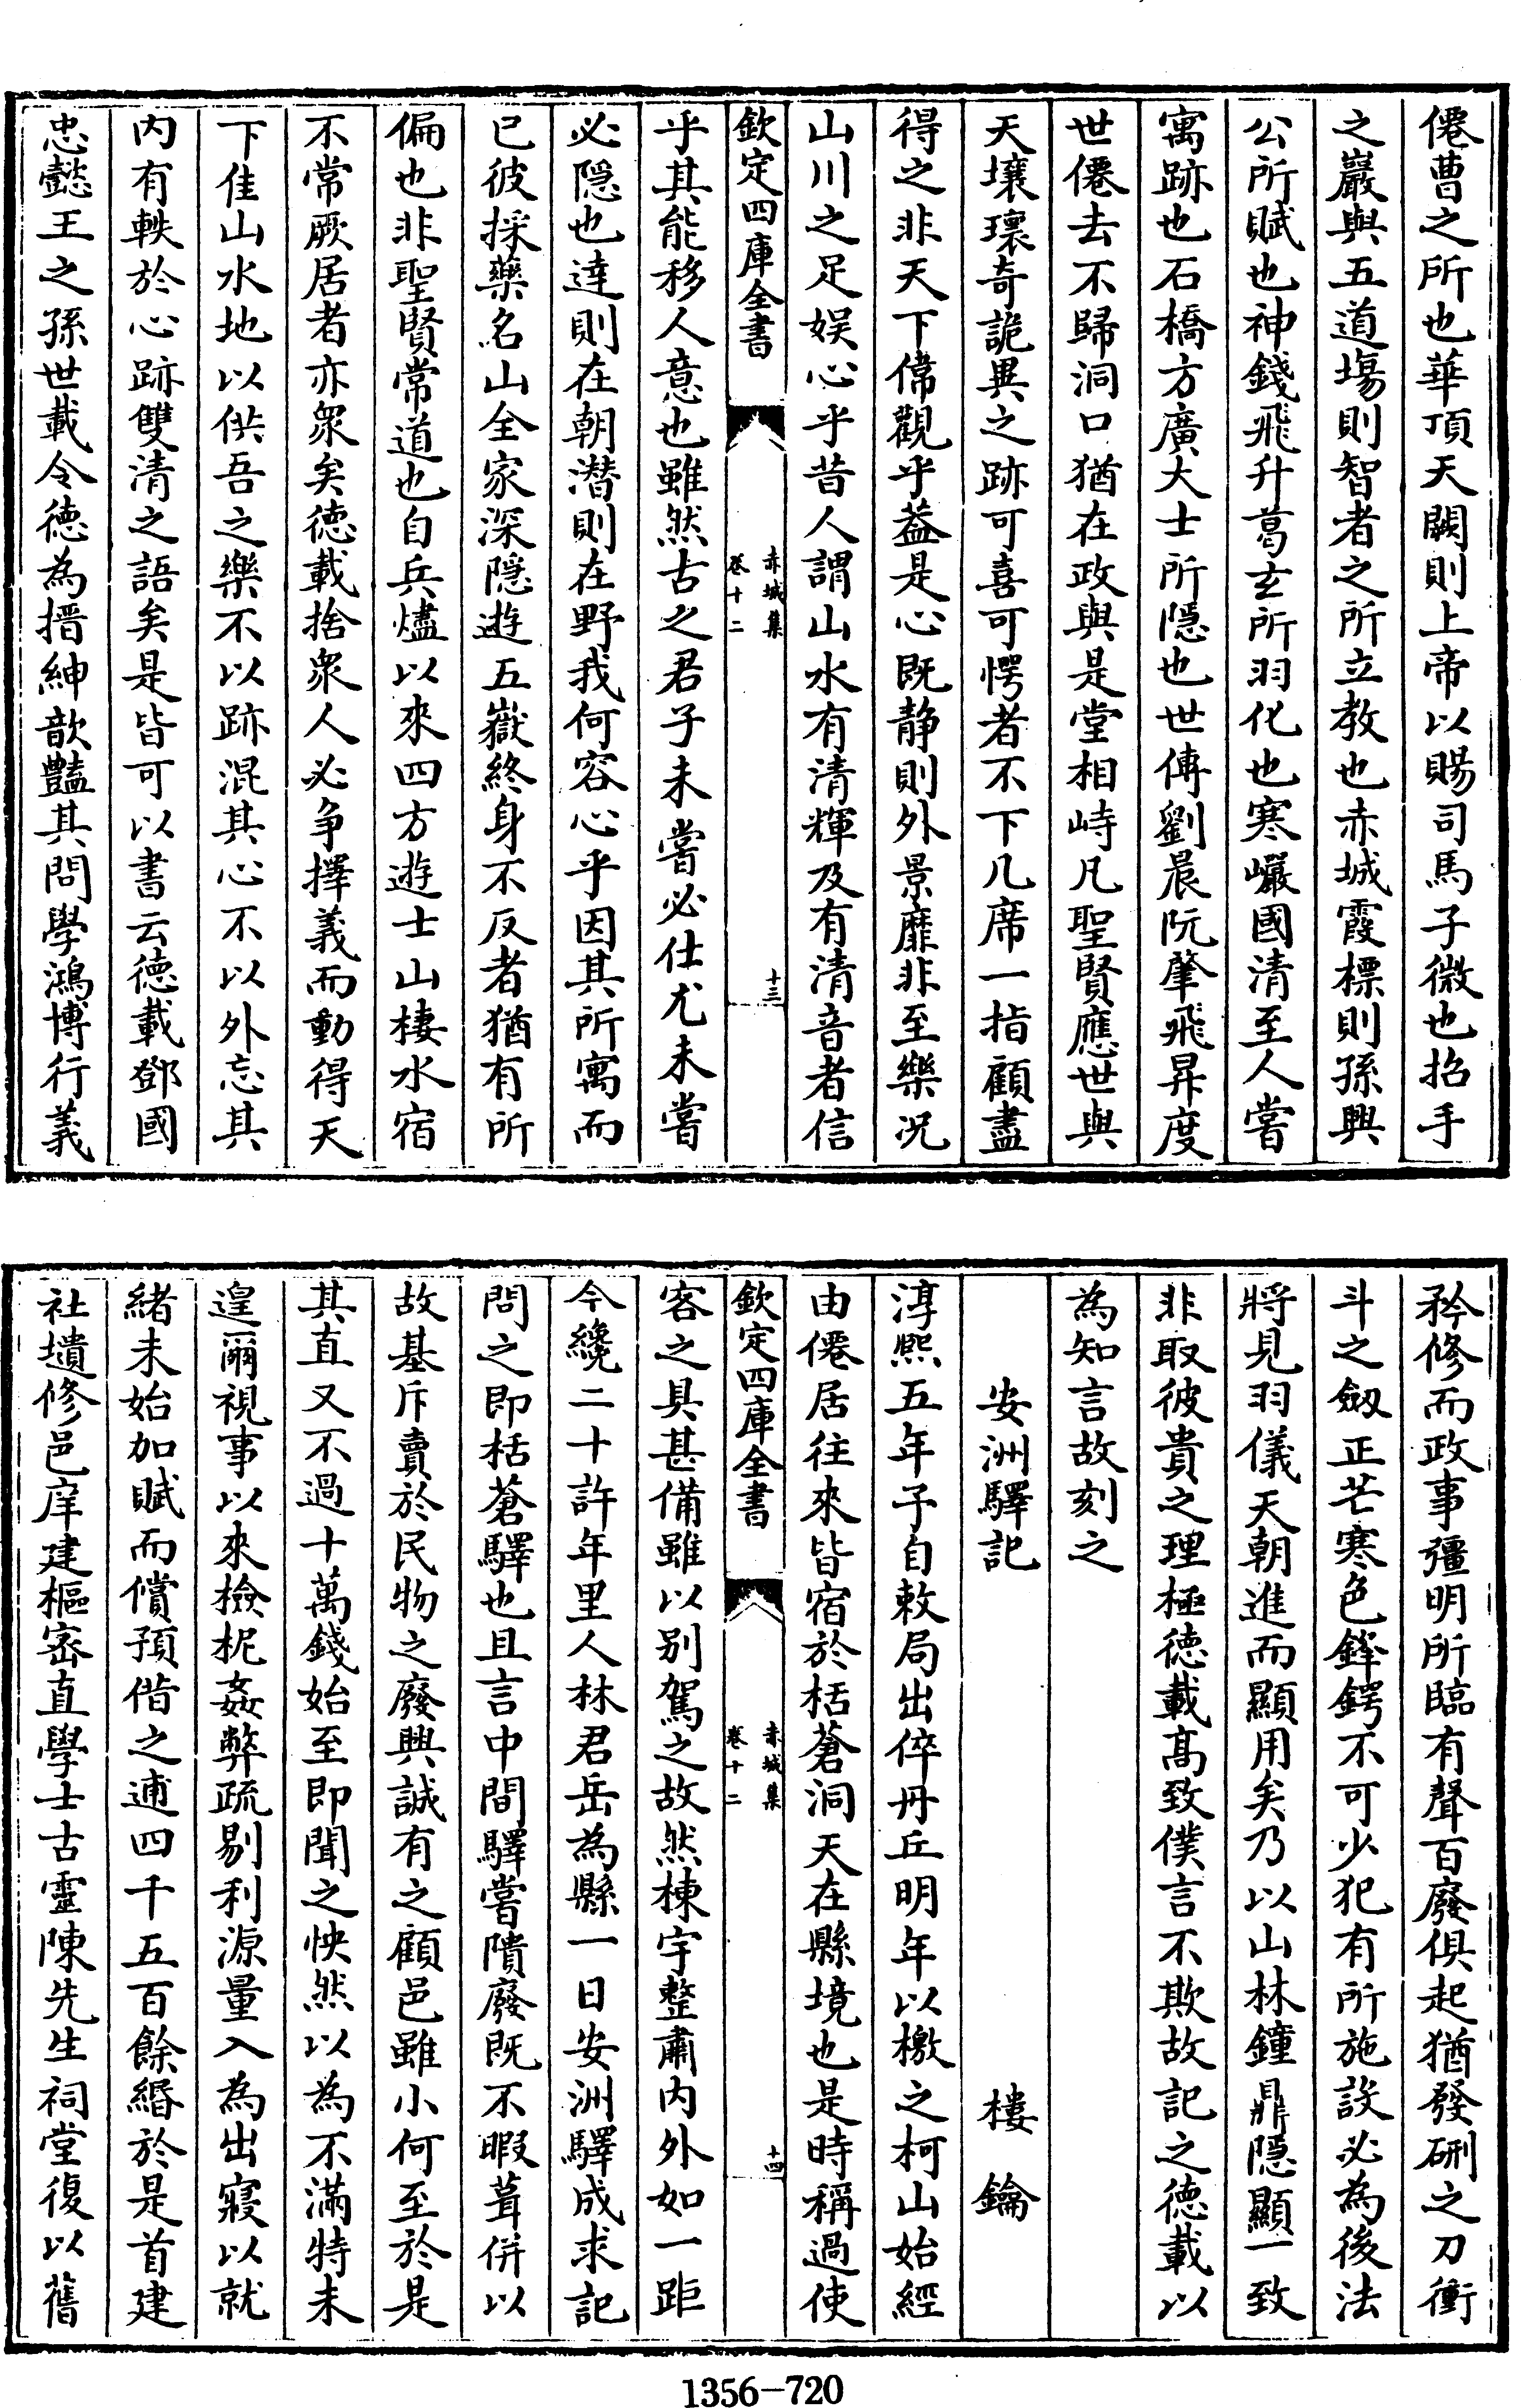 僊曹之所也華頂天闕則上帝以賜司馬子微也招手
之巖與五道場則智者之所立教也赤城霞標則孫興
公所賦也神錢飛升葛玄所羽化也寒巖國清至人嘗
寓跡也石橋方廣大士所隠也世傳劉晨阮肇飛昇度
世僊去不歸洞口猶在政與是堂相峙凡聖賢應世與
天壤瓌奇詭異之跡可喜可愕者不下几席一指顧盡
得之非天下偉觀乎葢是心既静則外景靡非至樂况
山川之足娱心乎昔人謂山水有清輝及有清音者信
欽定四庫全書
赤城集
卷十二
十三
乎其能移人意也雖然古之君子未嘗必仕尤未嘗
必隠也達則在朝潜則在野我何容心乎因其所寓而
已彼採藥名山全家深隠遊五嶽終身不反者猶有所
偏也非聖賢常道也自兵燼以來四方遊士山棲水宿
不常厥居者亦衆矣徳載捨衆人必争擇義而動得天
下佳山水地以供吾之樂不以跡混其心不以外忘其
内有軼於心跡雙清之語矣是皆可以書云徳載鄧國
忠懿王之孫世載令徳為搢紳歆豔其問學鴻博行義
矜修而政事彊明所臨有聲百廢俱起猶發硎之刀衝
斗之劔正芒寒色鋒鍔不可少犯有所施設必為後法
將見羽儀天朝進而顯用矣乃以山林鐘鼎隠顯一致
非取彼貴之理極徳載髙致僕言不欺故記之徳載以
為知言故刻之
安洲驛記 樓鑰
淳熙五年予自敕局出倅丹丘明年以檄之柯山始經
由僊居往來皆宿於括蒼洞天在縣境也是時稱過使
欽定四庫全書
赤城集
卷十二
十四
客之具甚備雖以别駕之故然棟宇整肅内外如一距
今纔二十許年里人林君岳為縣一日安洲驛成求記
問之即括蒼驛也且言中間驛嘗隤廢既不暇葺併以
故基斥賣於民物之廢興誠有之顧邑雖小何至於是
其直又不過十萬錢始至即聞之怏然以為不滿特未
遑爾視事以來檢柅姦弊疏剔利源量入為出寖以就
緒未始加賦而償預借之逋四千五百餘緡於是首建
社壝修邑庠建樞宻直學士古靈陳先生祠堂復以舊
1356-720